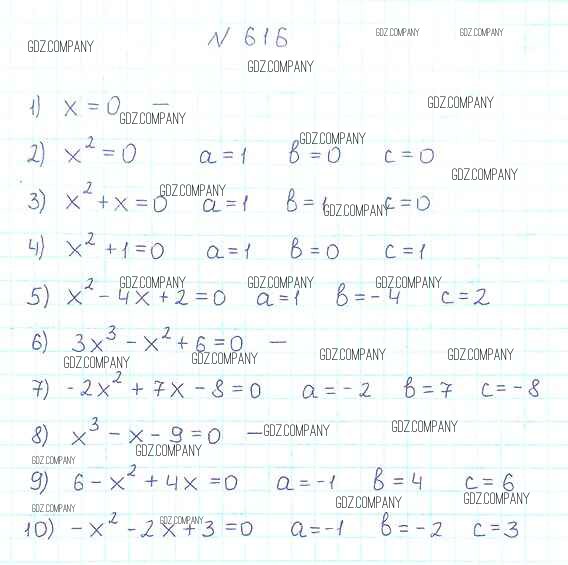 N 616
GDZ.COMPANY GDZ.COMPANY
GDZ.COMPANY
GDZ.COMPANY
1) x = 0 — GDZ.COMPANY
GDZ.COMPANY
GDZ.COMPANY
2) x² = 0 a = 1 в = 0 c = 0
GDZ.COMPANY
GDZ.COMPANY
3) x² + x = 0 a = 1 в = 1 c = 0
GDZ.COMPANY
4) x² + 1 = 0 a = 1 в = 0 c = 1
GDZ.COMPANY GDZ.COMPANY GDZ.COMPANY
5) x² - 4x + 2 = 0 a = 1 в = - 4 c = 2
6) 3x³ - x² + 6 = 0 —
GDZ.COMPANY GDZ.COMPANY GDZ.COMPANY GDZ.COMPANY
7) - 2x² + 7x - 8 = 0 a = - 2 в = 7 c = - 8
8) x³ - x - 9 = 0 — GDZ.COMPANY GDZ.COMPANY
GDZ.COMPANY
GDZ.COMPANY
9) 6 - x² + 4x = 0 a = -1 в = 4 c = 6
GDZ.COMPANY GDZ.COMPANY GDZ.COMPANY
GDZ.COMPANY
10) - x² - 2x + 3 = 0 a = -1 в = - 2 c = 3